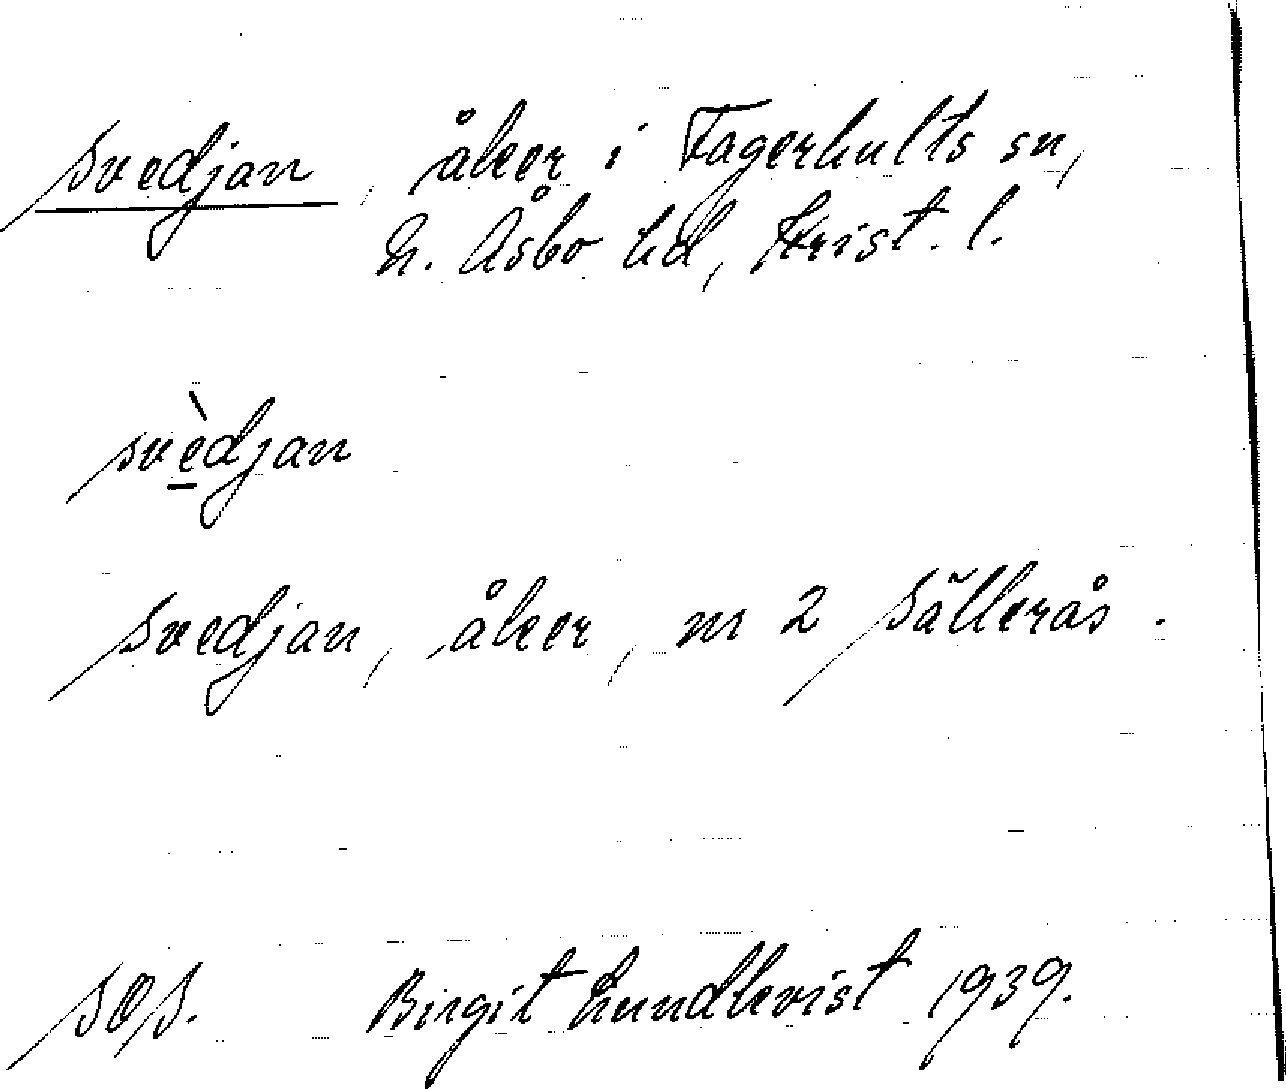 Svedjan, åker i Fagerhults sn,
N. Åsbo hd, Krist. l.
svèdjan
Svedjan, åker, nr 2 Sällerås.
SOS. Birgit Lundkvist 1939.